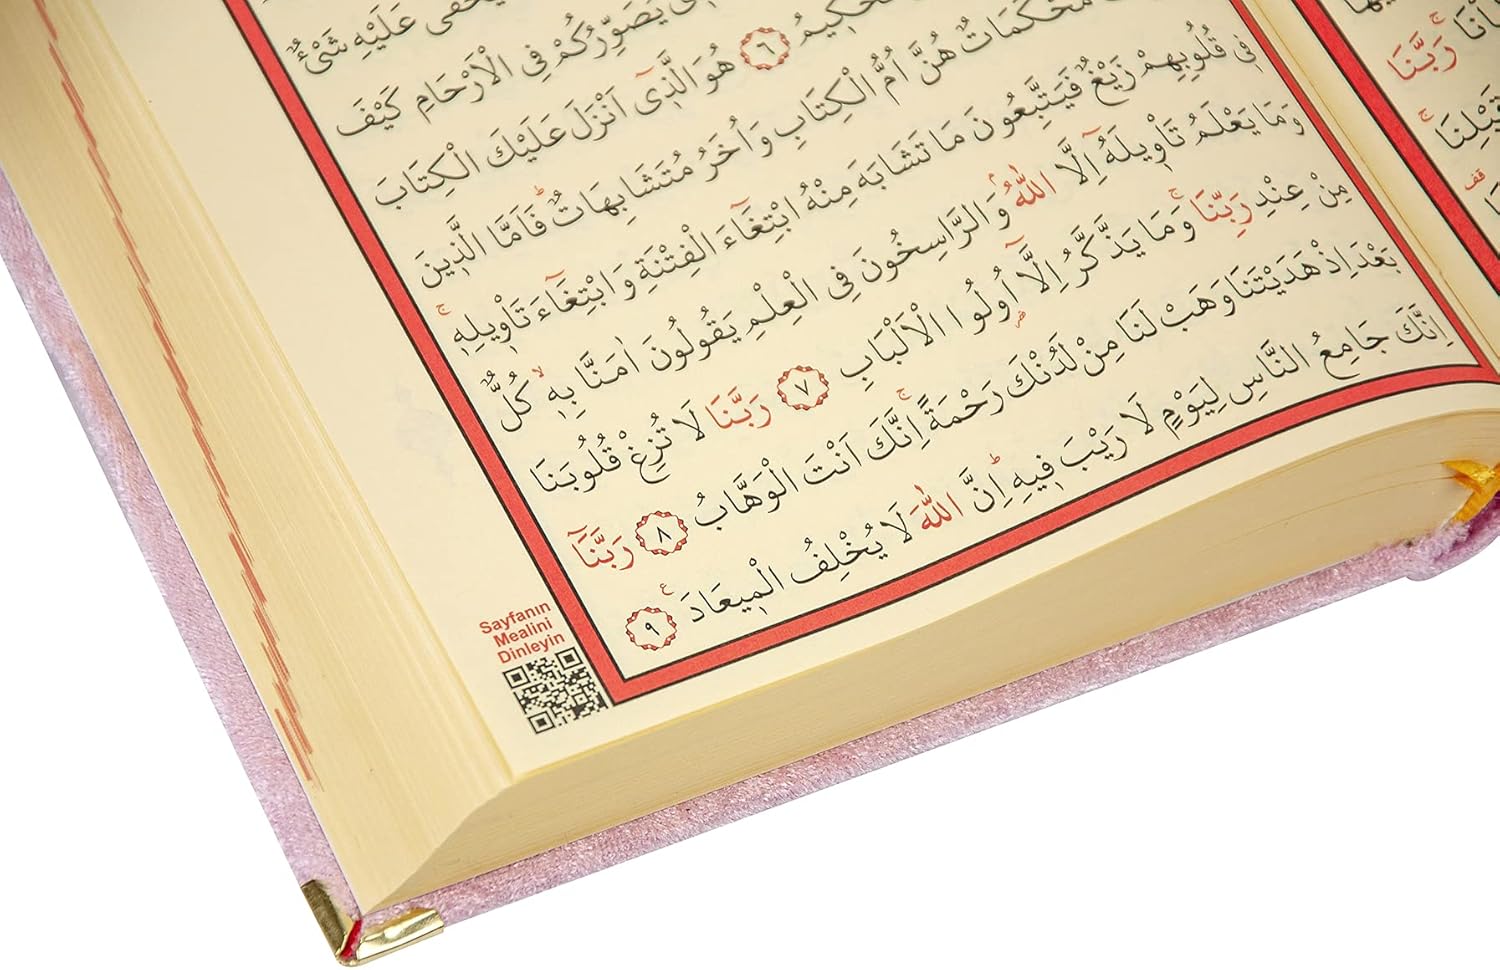 يَخْفٰى عَلَيْهِ شَيْءٌ
يُصَوِّرُكُمْ فِى الْاَرْحَامِ كَيْفَ
الْحَكِيمُ ﴿٦﴾ هُوَ الَّذ۪ٓى اَنْزَلَ عَلَيْكَ الْكِتَابَ
مُحْكَمَاتٌ هُنَّ اُمُّ الْكِتَابِ وَاُخَرُ مُتَشَابِهَاتٌۜ فَاَمَّا الَّذ۪ينَ
ف۪ى قُلُوبِهِمْ زَيْغٌ فَيَتَّبِعُونَ مَا تَشَابَهَ مِنْهُ ابْتِغَٓاءَ الْفِتْنَةِ وَابْتِغَٓاءَ تَاْو۪يلِه۪ۚ
وَمَا يَعْلَمُ تَاْو۪يلَهُٓ اِلَّا اللّٰهُۢ وَالرَّاسِخُونَ فِى الْعِلْمِ يَقُولُونَ اٰمَنَّا بِه۪ۙ كُلٌّ
مِنْ عِنْدِ رَبِّنَاۚ وَمَا يَذَّكَّرُ اِلَّٓا اُولُوا الْاَلْبَابِ ﴿٧﴾ رَبَّنَا لَا تُزِغْ قُلُوبَنَا
بَعْدَ اِذْ هَدَيْتَنَا وَهَبْ لَنَا مِنْ لَدُنْكَ رَحْمَةًۚ اِنَّكَ اَنْتَ الْوَهَّابُ ﴿٨﴾ رَبَّنَٓا
اِنَّكَ جَامِعُ النَّاسِ لِيَوْمٍ لَا رَيْبَ ف۪يهِۜ اِنَّ اللّٰهَ لَا يُخْلِفُ الْم۪يعَادَ۟ ﴿٩﴾
Sayfanın
Mealini
Dinleyin
رَبَّنَا